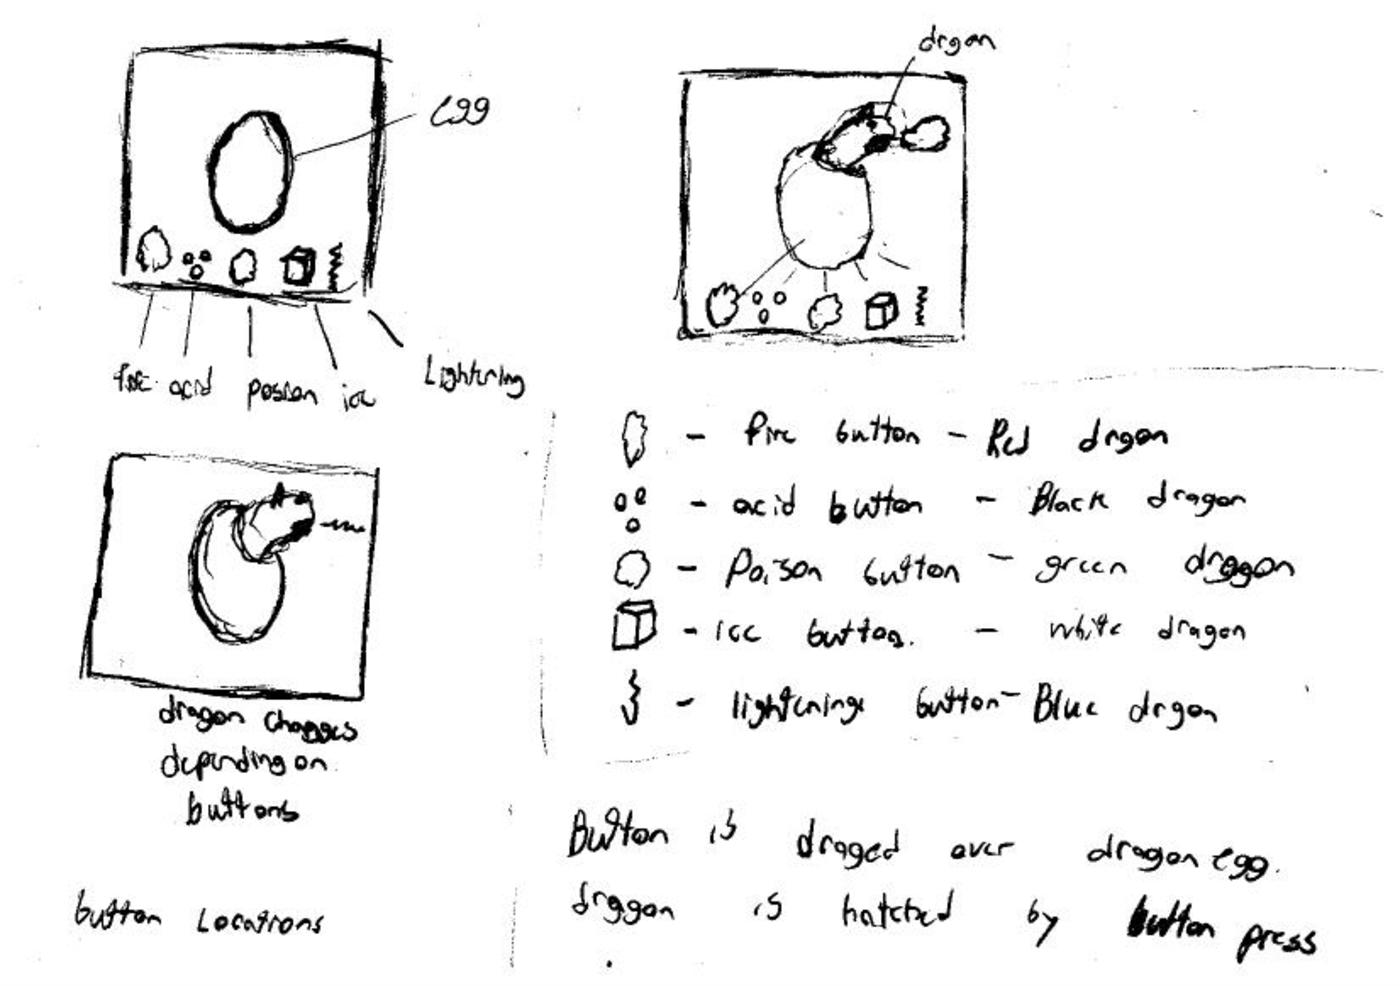 egg
drgon
fire acid possion ice Lightning
fire button - Red drgon
acid button - Black dragon
Poison button - green drggon
ice button. - white dragon
lightening button - Blue drgon
dragon changes
depending on
buttons
Button is draged over dragon egg.
drggon is hatched by button press
button Locations